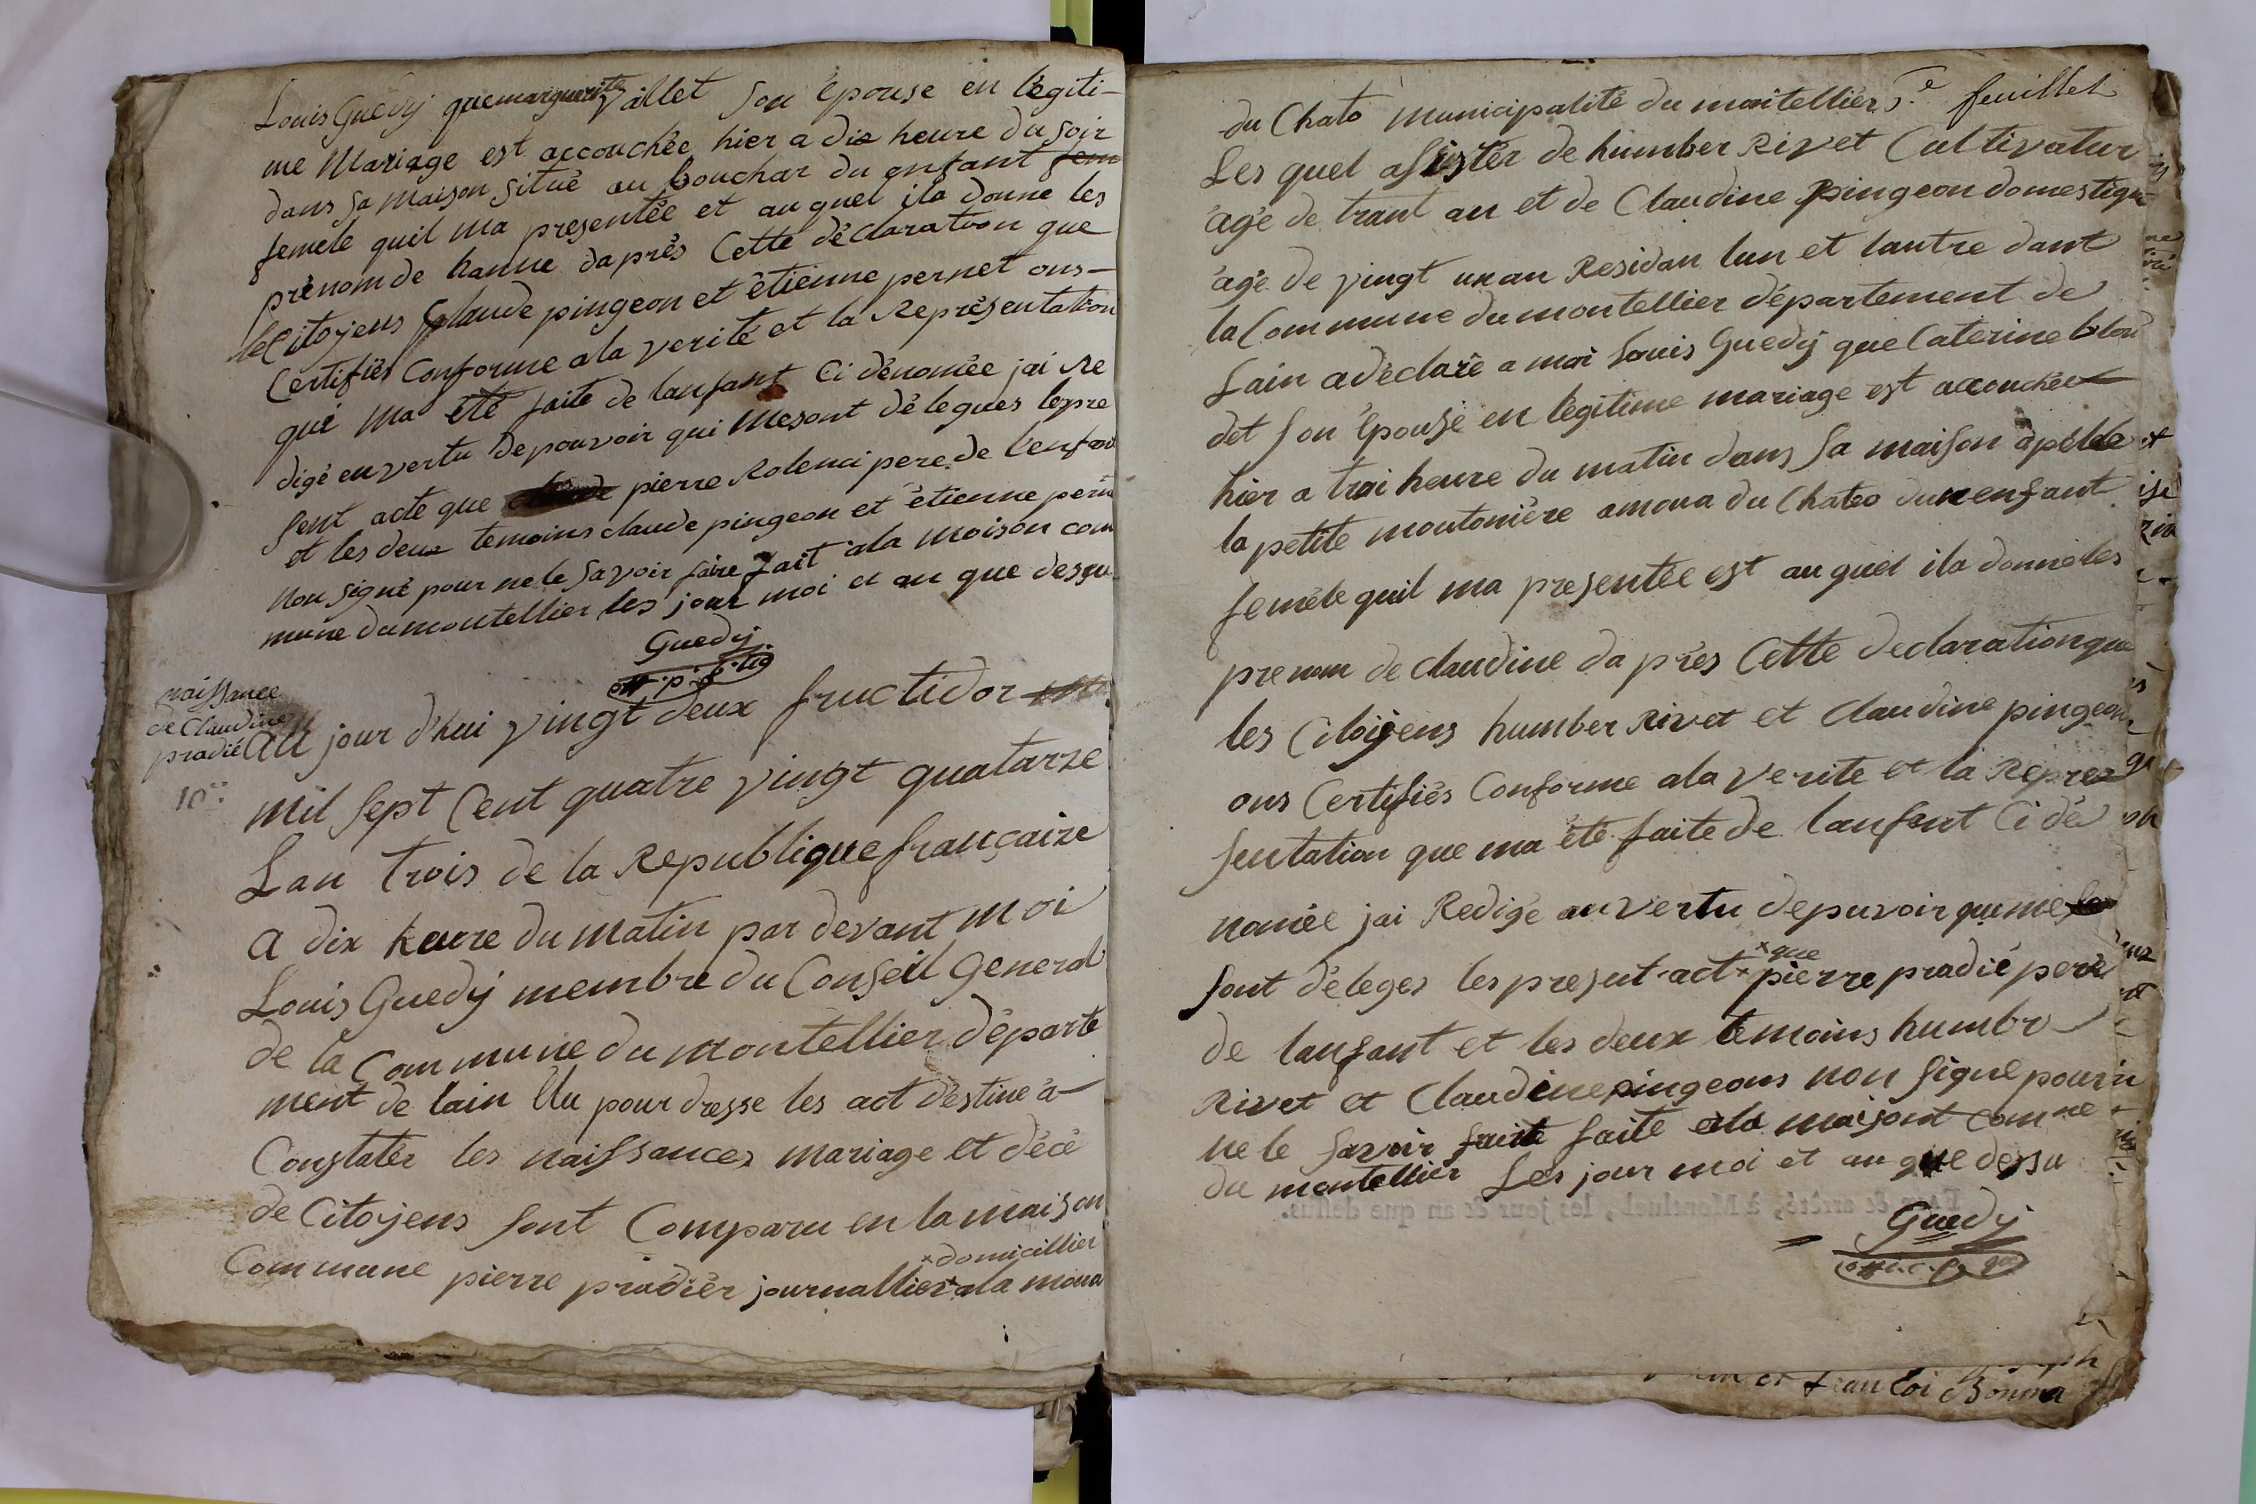 Louis Guedy que marguerite vallet son épouse en légiti-
me Mariage est accouchée hier a dix heure du soir
dans sa maison situé au bouchar du enfant fem
femele quil ma presentée et au quel ila donne les
prénom de hanne daprès Cette déclaration que
le Citoyens Claude pingeon et étienne pernet ons-
Certifiés Conforme ala verité et la Représentation
qui ma été faite de lanfant Ci dénomée jai Re
digé en vertu de pouvoir qui me sont délegues lepre
sent acte que pierre Rolenci pere de l'enfant
et les deux temoins claude pingeon et étienne perne
non signé pour ne le savoir faire fait ala moison com
mune dumontellier les jour moi et an que desu
Guedy
off. p.
naissance
de Claudine
pradié
10e
au jour d'hui vingt deux fructidor
mil sept Cent quatre vingt quatarze
Lan trois de la Republique françaize
a dix heure du matin par devant moi
Louis Guedy membre du Conseil General
de la Commune du montellier départe
ment de lain Elu pour dresse les act déstine à
Constatér les naissances mariage et décé
de Citoyens sont Comparu en la maison
×domicillier
Commune pierre pradiér journallier× ala moua
du Chato municipalité du montelliér 5.e feuillet
Les quel asistér de humber Rivet Cultivatur
àgé de trant an et de Claudine pingeon domestique
àgé de vingt un an Residan lun et lautre dant
la Commune du montellier département de
Lain a déclaré a moi Louis Guedy que Caterine blon
det son épouse en légitime mariage est accouchée
hier a troi heure du matin dans sa maison apélée
la petite moutoniére amoua du Chateo dun enfant
feméle quil ma presentée est au quel ila donné les
prenom de claudine da prés Cette declaration que
les Citoyens humber Rivet et claudine pingeon
ons Certifiés Conforme ala verite et la Repre
sentation que ma été faite de lanfent Ci dé
nomée jai Redigé au vertu depuvoir qume
×que
sont déleges les presnt act× pierre pradié pere
de lanfant et les deux temoins humbr
Rivet et Claudine pingeons non signe pour
ne le savoir faite faite ala maisont com ne
du montellier Les jour moi et an que desu
& arrêté, à Montluel, les jour & an que dessus.
Guedy